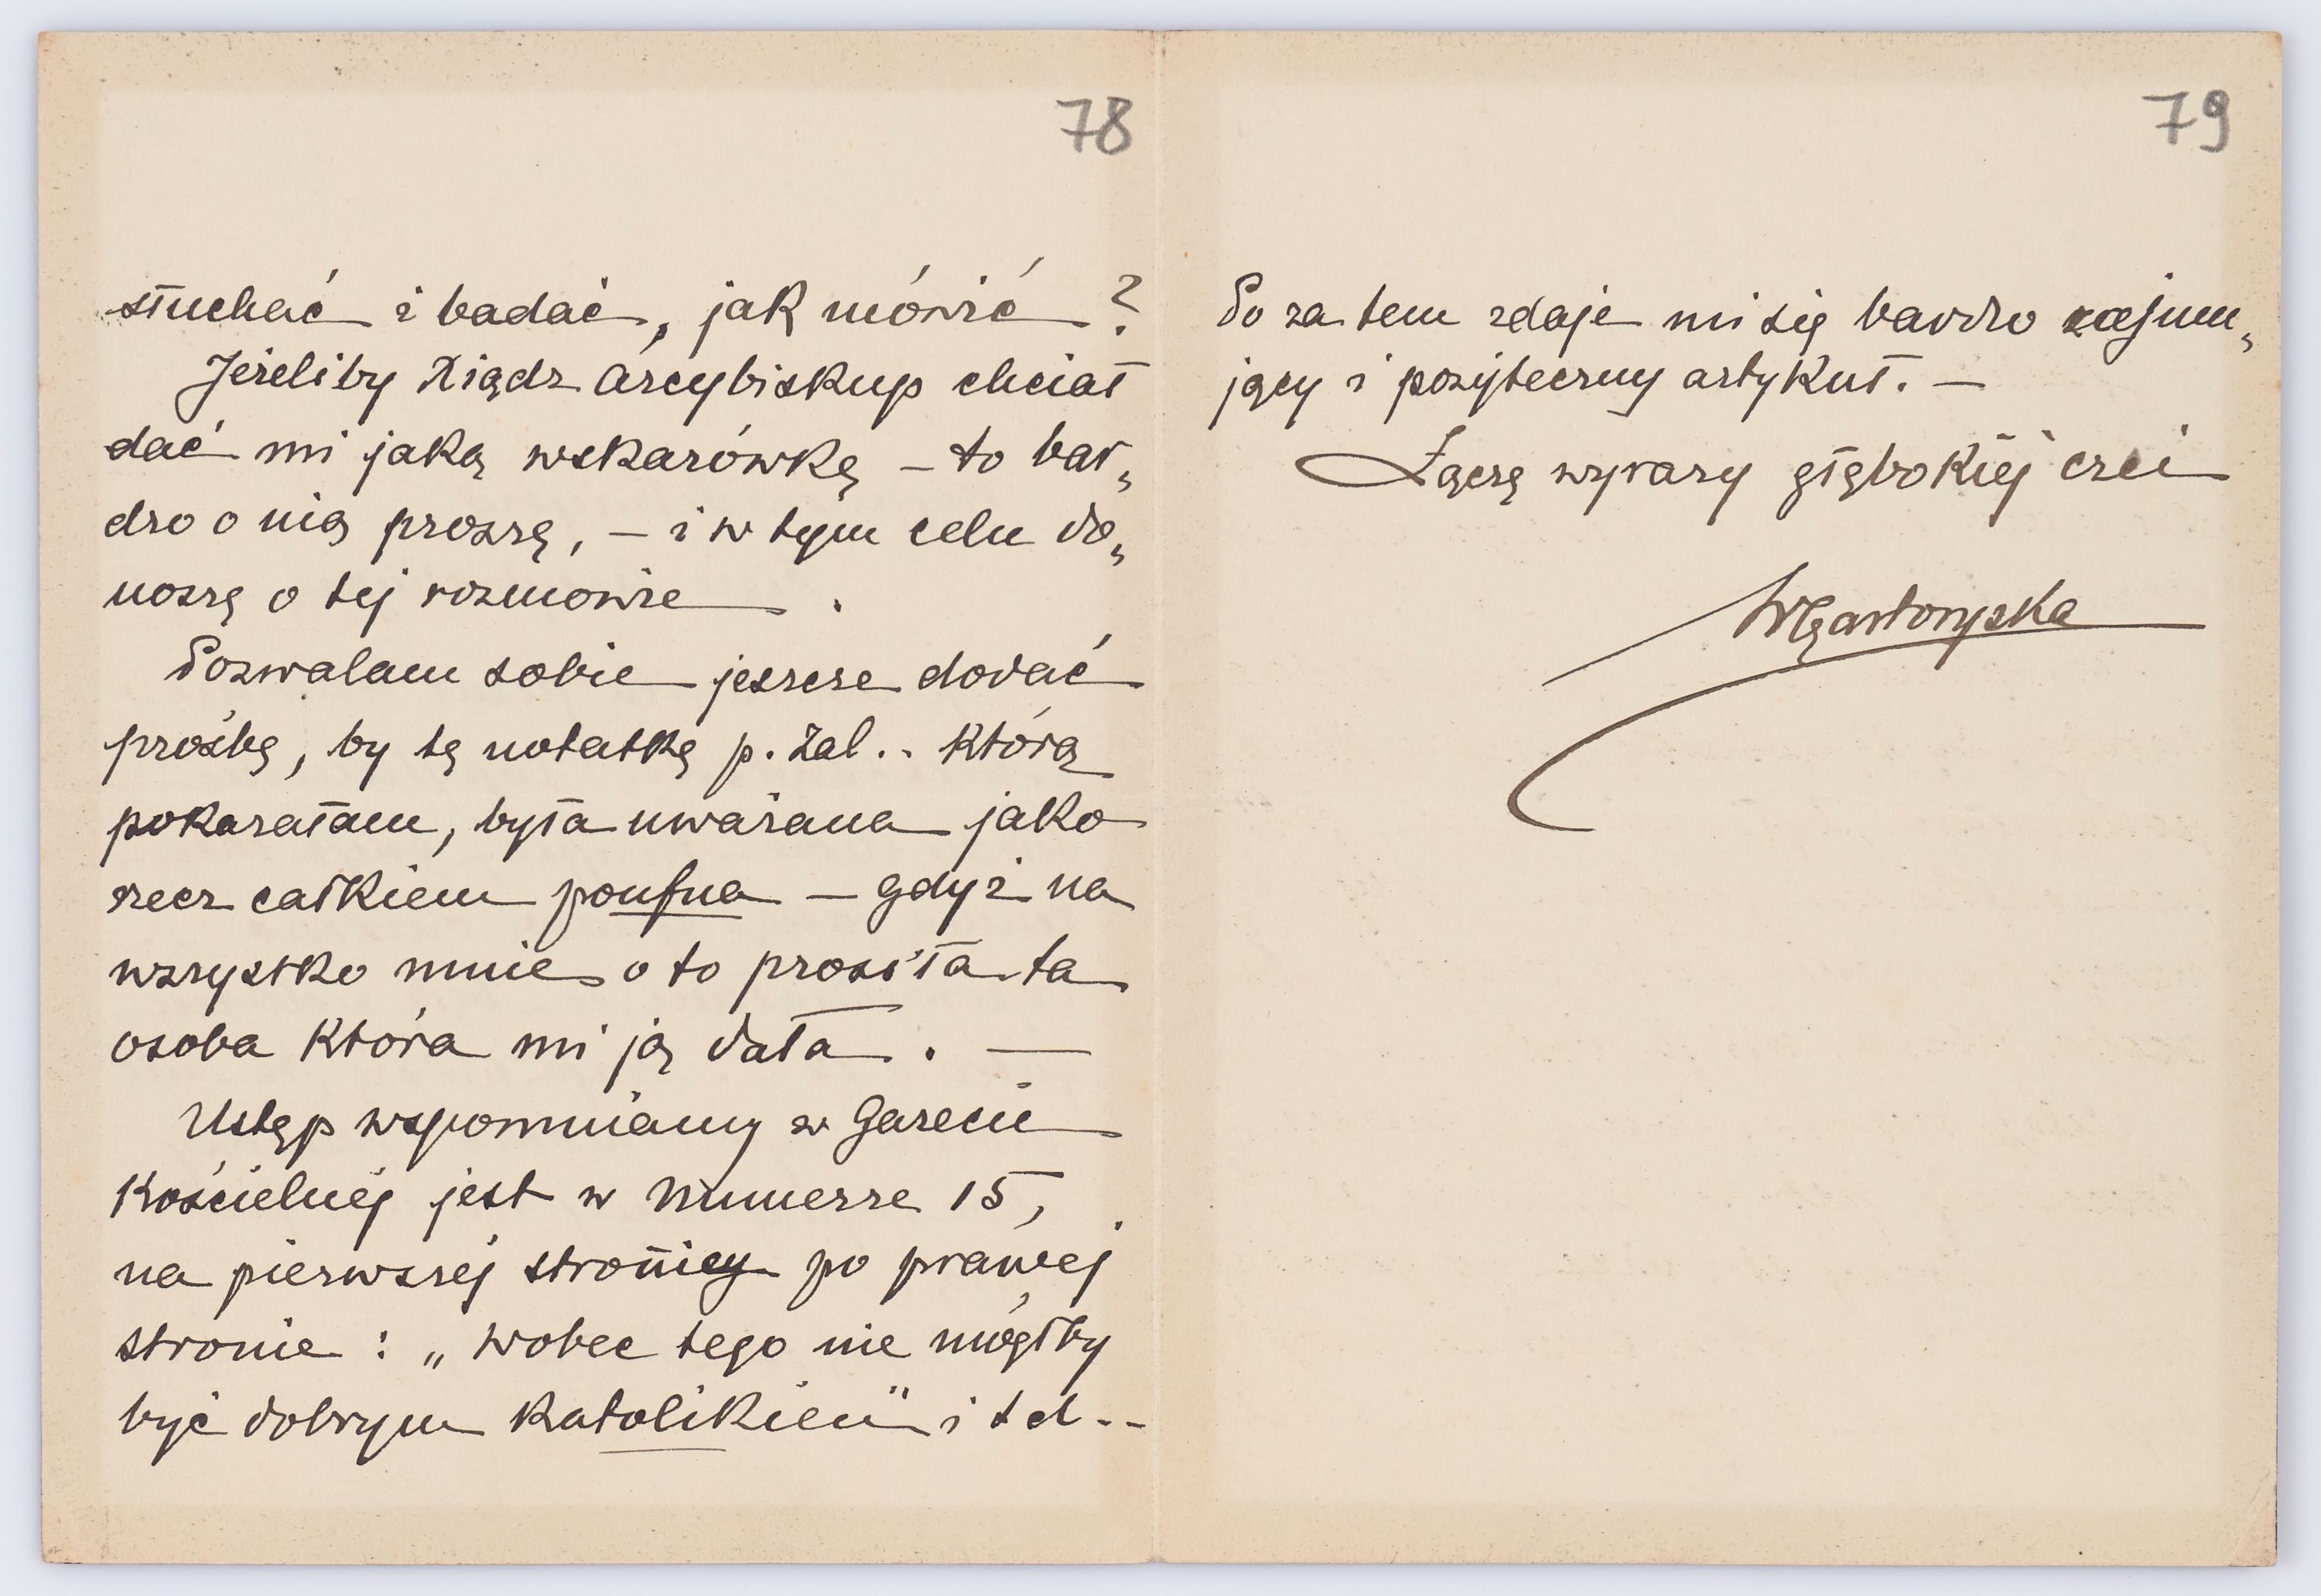 78
słuchać i badać, jak mówić ?
Jeżeliby Xiądz Arcybiskup chciał
dać mi jaką wskazówkę – to bar„
dzo o nią proszę, – i w tym celu do„
noszę o tej rozmowie .
Pozwalam sobie jeszcze dodać
prośbę, by tę notatkę p. Zal.. którą
pokazałam, była uważana jako
rzecz całkiem poufna – gdyż na
wszystko mnie o to prosiła ta
osoba która mi ją dała . —
Ustęp wspomniany w Gazecie
Kościelnéj jest w Numerze 15,
na pierwszéj stronicy po prawej
stronie : „ wobec tego nie mógłby
być dobrym katolikiem" i t d . -
79
Po za tem zdaje mi się bardzo zajmu„
jący i pożyteczny artykuł. —
Łączę wyrazy głębokiéj czci
WCzartoryska